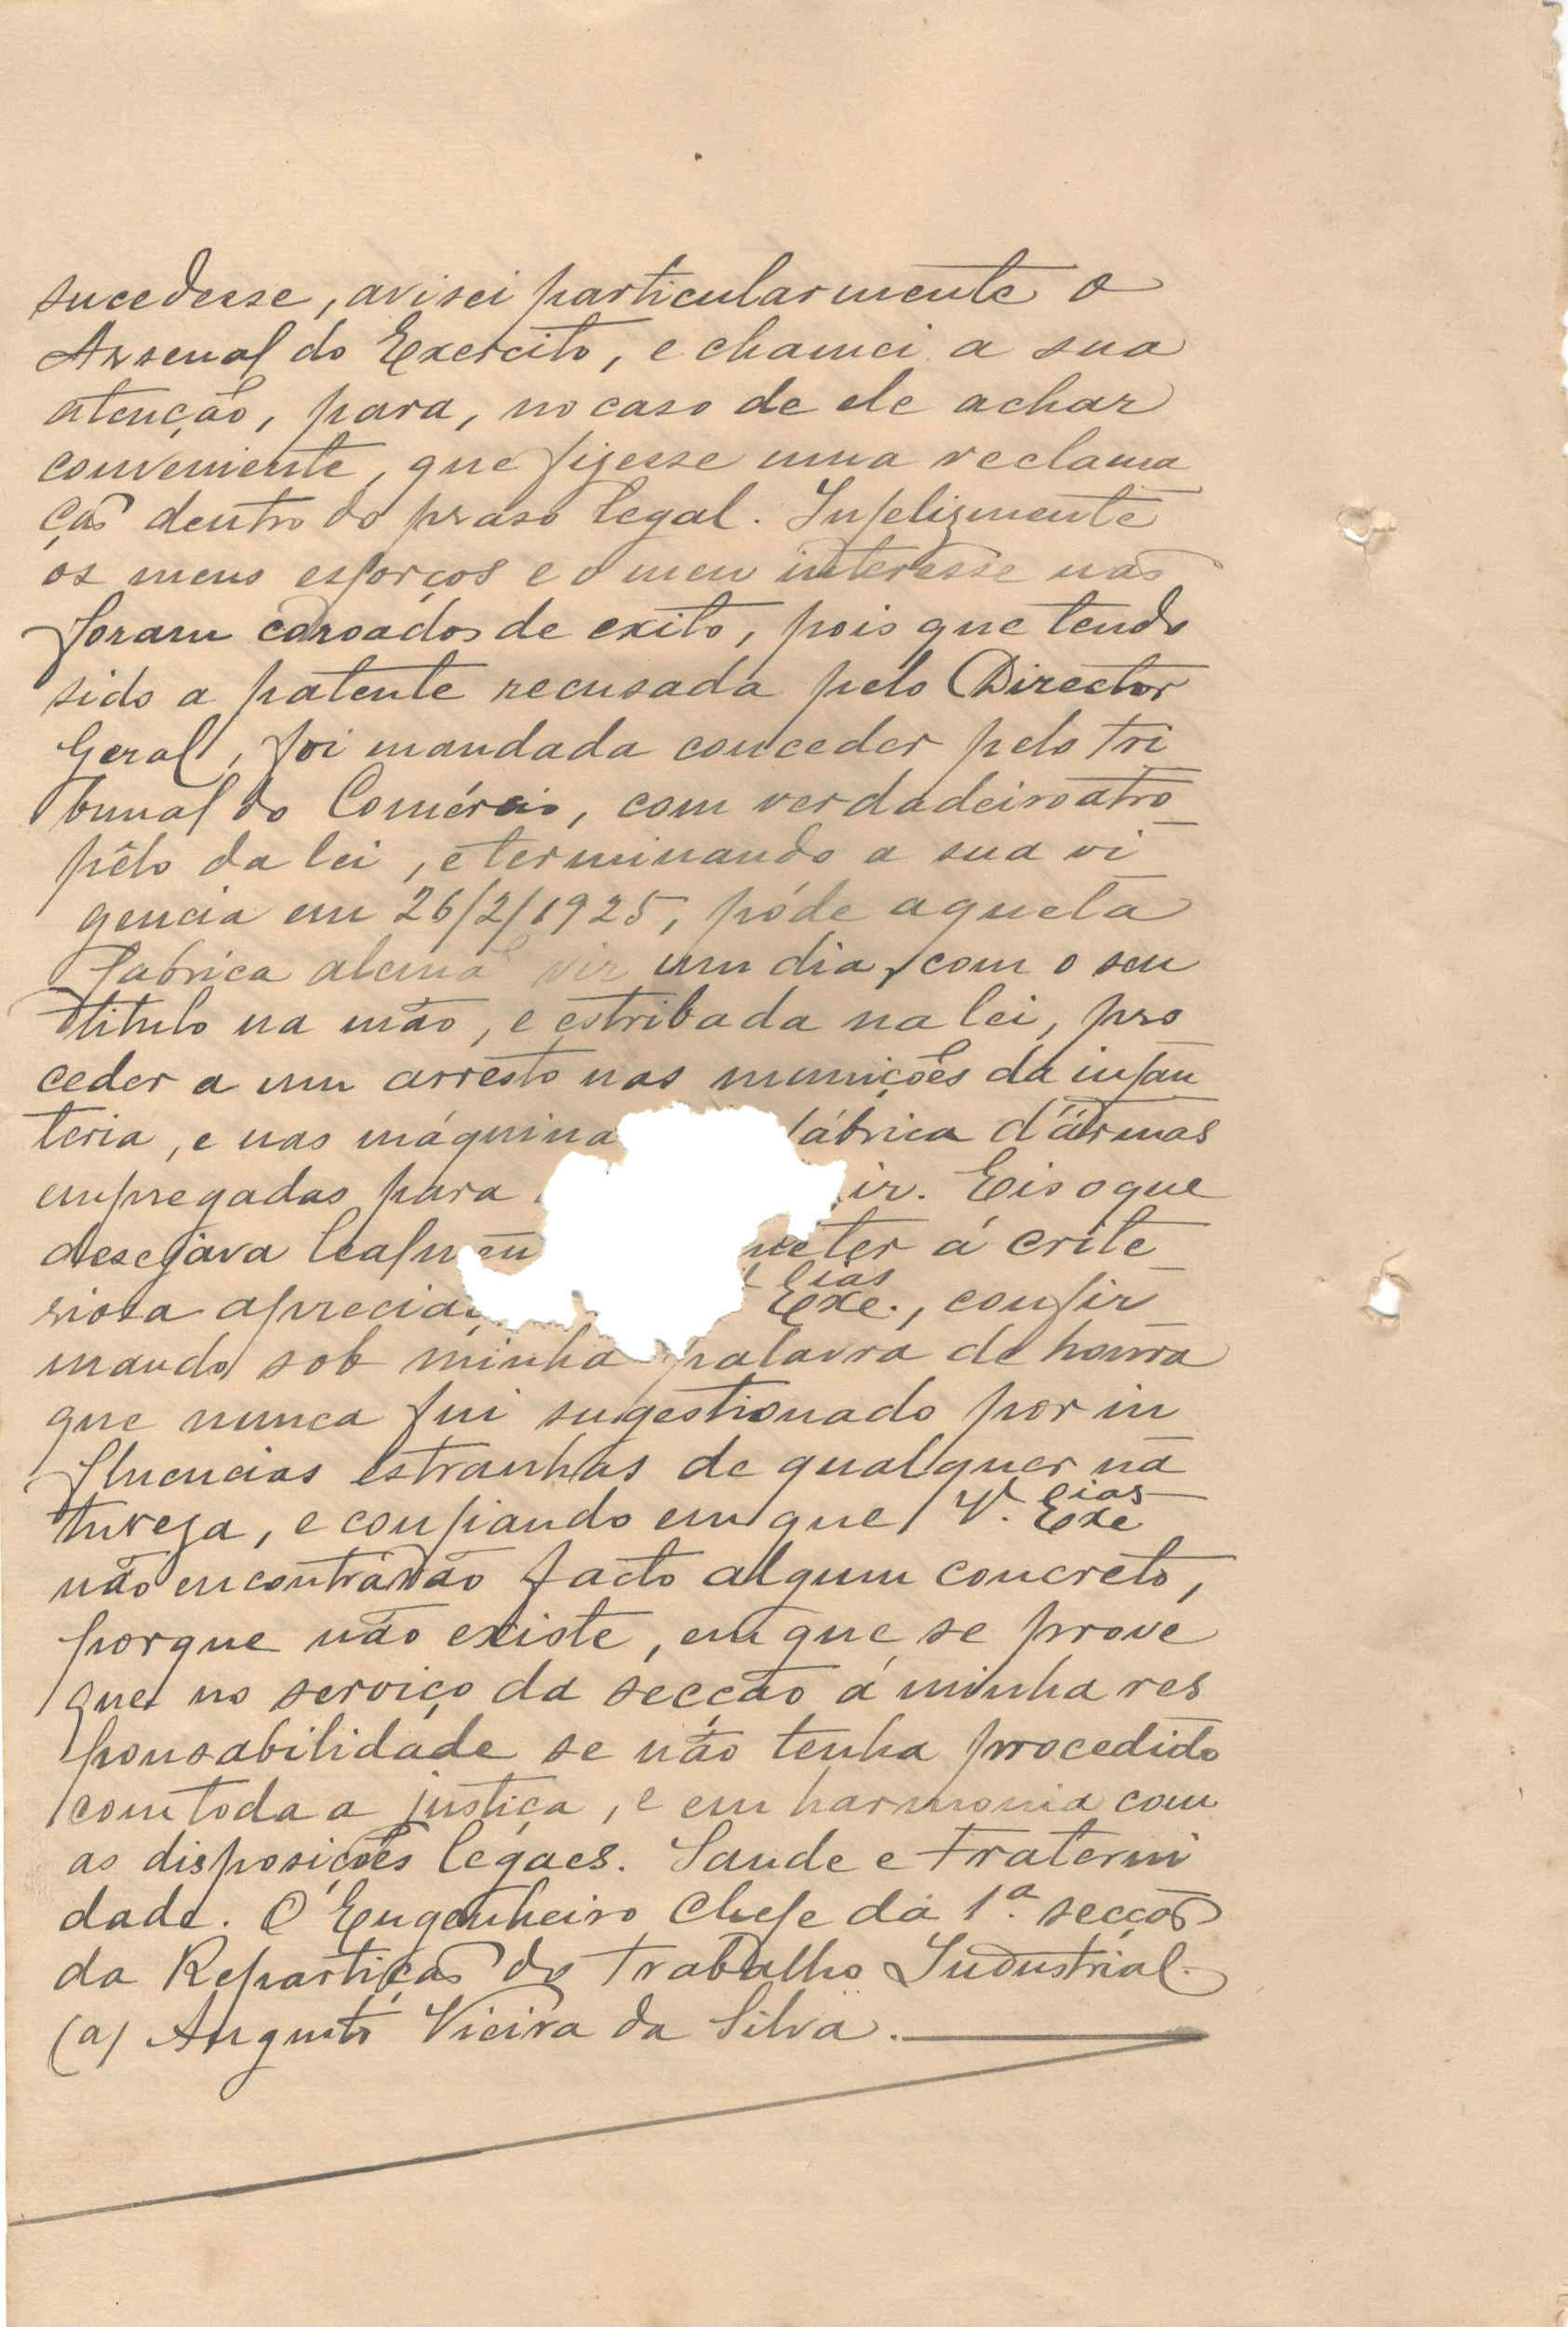 sucedesse, avisei particularmente o
Arsenal do Exercito, e chamei a sua
atenção, para, no caso de ele achar
conveniente, que fizesse uma reclama
ção dentro do praso legal. Infelizmente
os meus esforços e o meu interesse não
foram coroados de exito, pois que tendo
sido a patente recusada pelo Director
Geral, foi mandada conceder pelo tri
bunal do Comércio, com verdadeiro atro
pêlo da lei, e terminando a sua vi
gencia em 26/2/1925, póde aquela
fabrica alemã vir um dia, com o seu
titulo na mão, e estribada na lei, pro
ceder a um arresto nas munições da infan
teria, e nas máquina fábrica d'armas
empregadas para ir. Eis o que
desejava lealmen meter á crite
riosa apreciaç Exe.cias, confir
mando sob minha palavra de honra
que nunca fui sugestionado por in
fluencias estranhas de qualquer na
tureza, e confiando em que V. Execias
não encontrarão facto algum concreto,
porque não existe, em que se prove
que no serviço da secção á minha res
ponsabilidade se não tenha procedido
com toda a justiça, e em harmonia com
as disposições legaes. Saude e Fraterni
dade. O Engenheiro Chefe da 1.ª secção
da Repartição do Trabalho Industrial.
(a) Augusto Vieira da Silva.